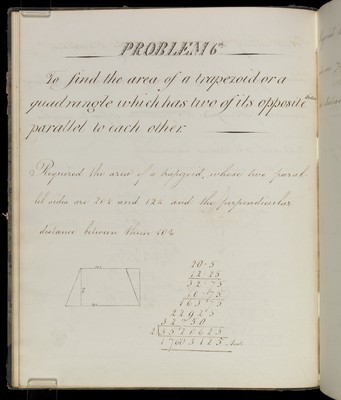 PROBLEM 6th
To find the area of a trapezoid or a
quadrangle which has two of its opposite sides
parallel to each other.
Required the area of a trapezoid, whose two paral-
lel sides are 20½ and 12¼ and the perpendicular
distance between them 10¾
20.5
12.25
32.75
10.75
16375
22925
32750
2 3520625
17603125 Ans.